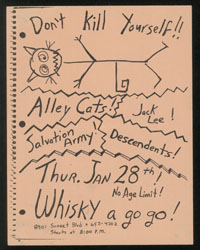 Don't Kill Yourself!!
Alley Cats!!
Jack Lee!
Salvation Army
Descendents!
Thur. Jan 28th!
No Age Limit!
Whisky a go go!
8901 Sunset Blvd • 652-4202
Starts at 8:00 P.M.